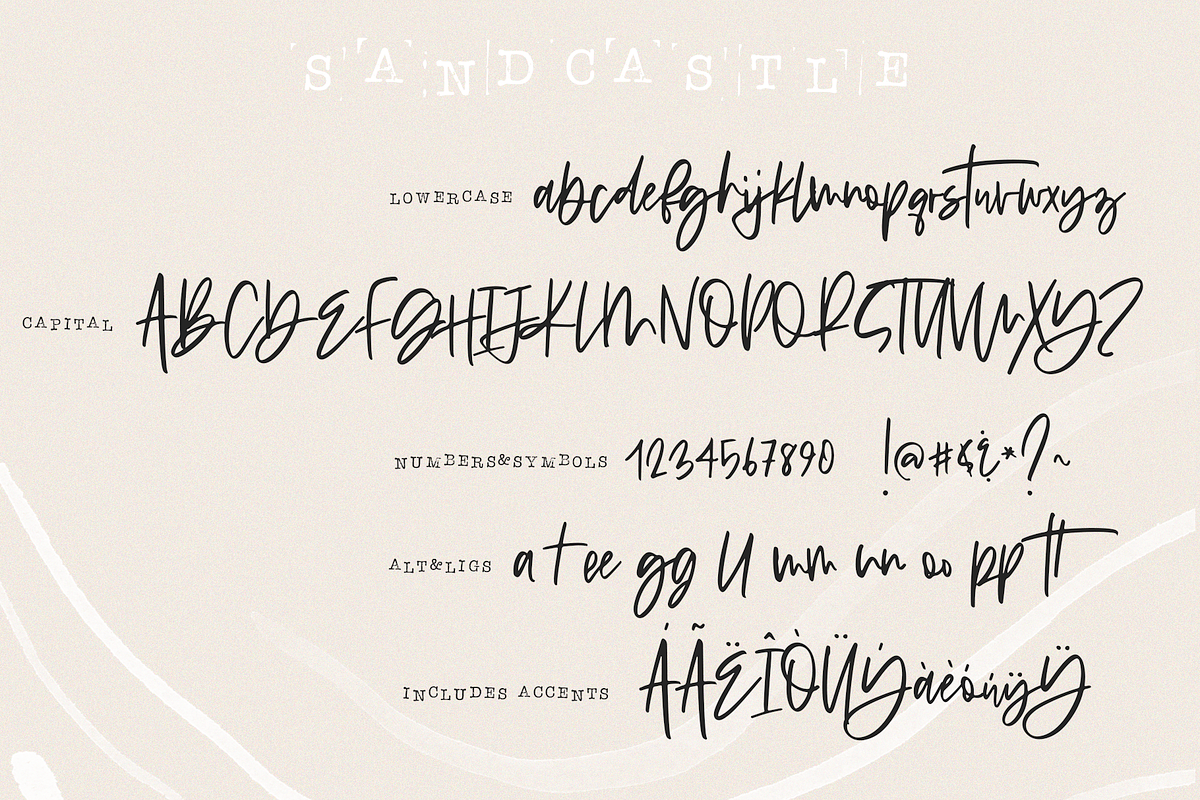 SANDCASTLE
LOWERCASE abcdefghijklmnopqrstuvwxyz
CAPITAL ABCDEFGHIJKLMNOPQRSTUVWXYZ
NUMBERS&SYMBOLS 1234567890 !@#$&*?~
ALT&LIGS a t ee gg ll mm nn oo pp tt
INCLUDES ACCENTS ÁÃËÎÒÜÝàèóúÿŸ